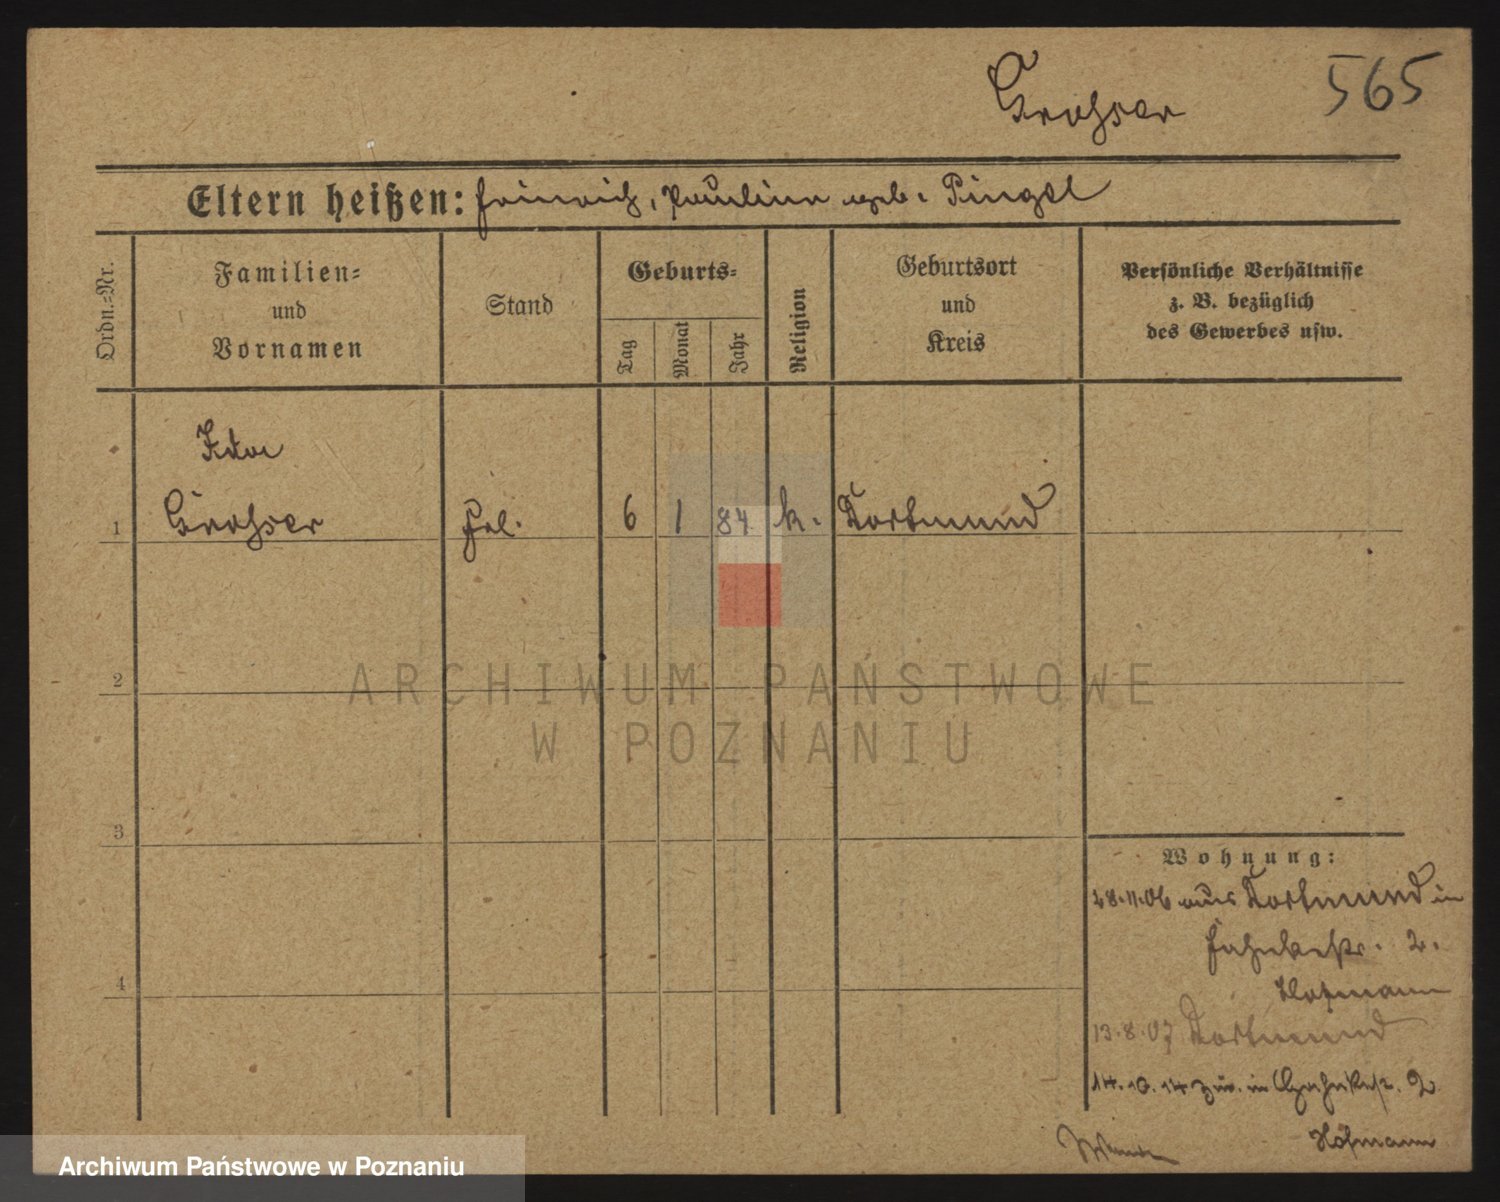 Grosser 565
Eltern heißen: Heinrich, Pauline geb. Pingel
Ordn.=Nr.
Familien=
und
Vornamen
Stand
Geburts=
Tag
Monat
Jahr
Religion
Geburtsort
und
Kreis
Persönliche Verhältnisse
z. B. bezüglich
des Gewerbes usw.
Ida
1 Grosser Frl. 6 1 84 k. Dortmund
2
3
4
ARCHIWUM PAŃSTWOWE
W POZNANIU
Wohnung:
28.11.06 aus Dortmund in
2.
Hofmann
13.8.07 Dortmund
14.10.14 zur. in 2
Hofmann
Archiwum Państwowe w Poznaniu